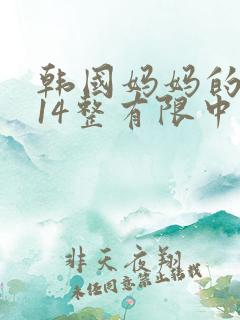 韩国妈妈的
14整有限中
非天夜翔
未经同意禁止转载